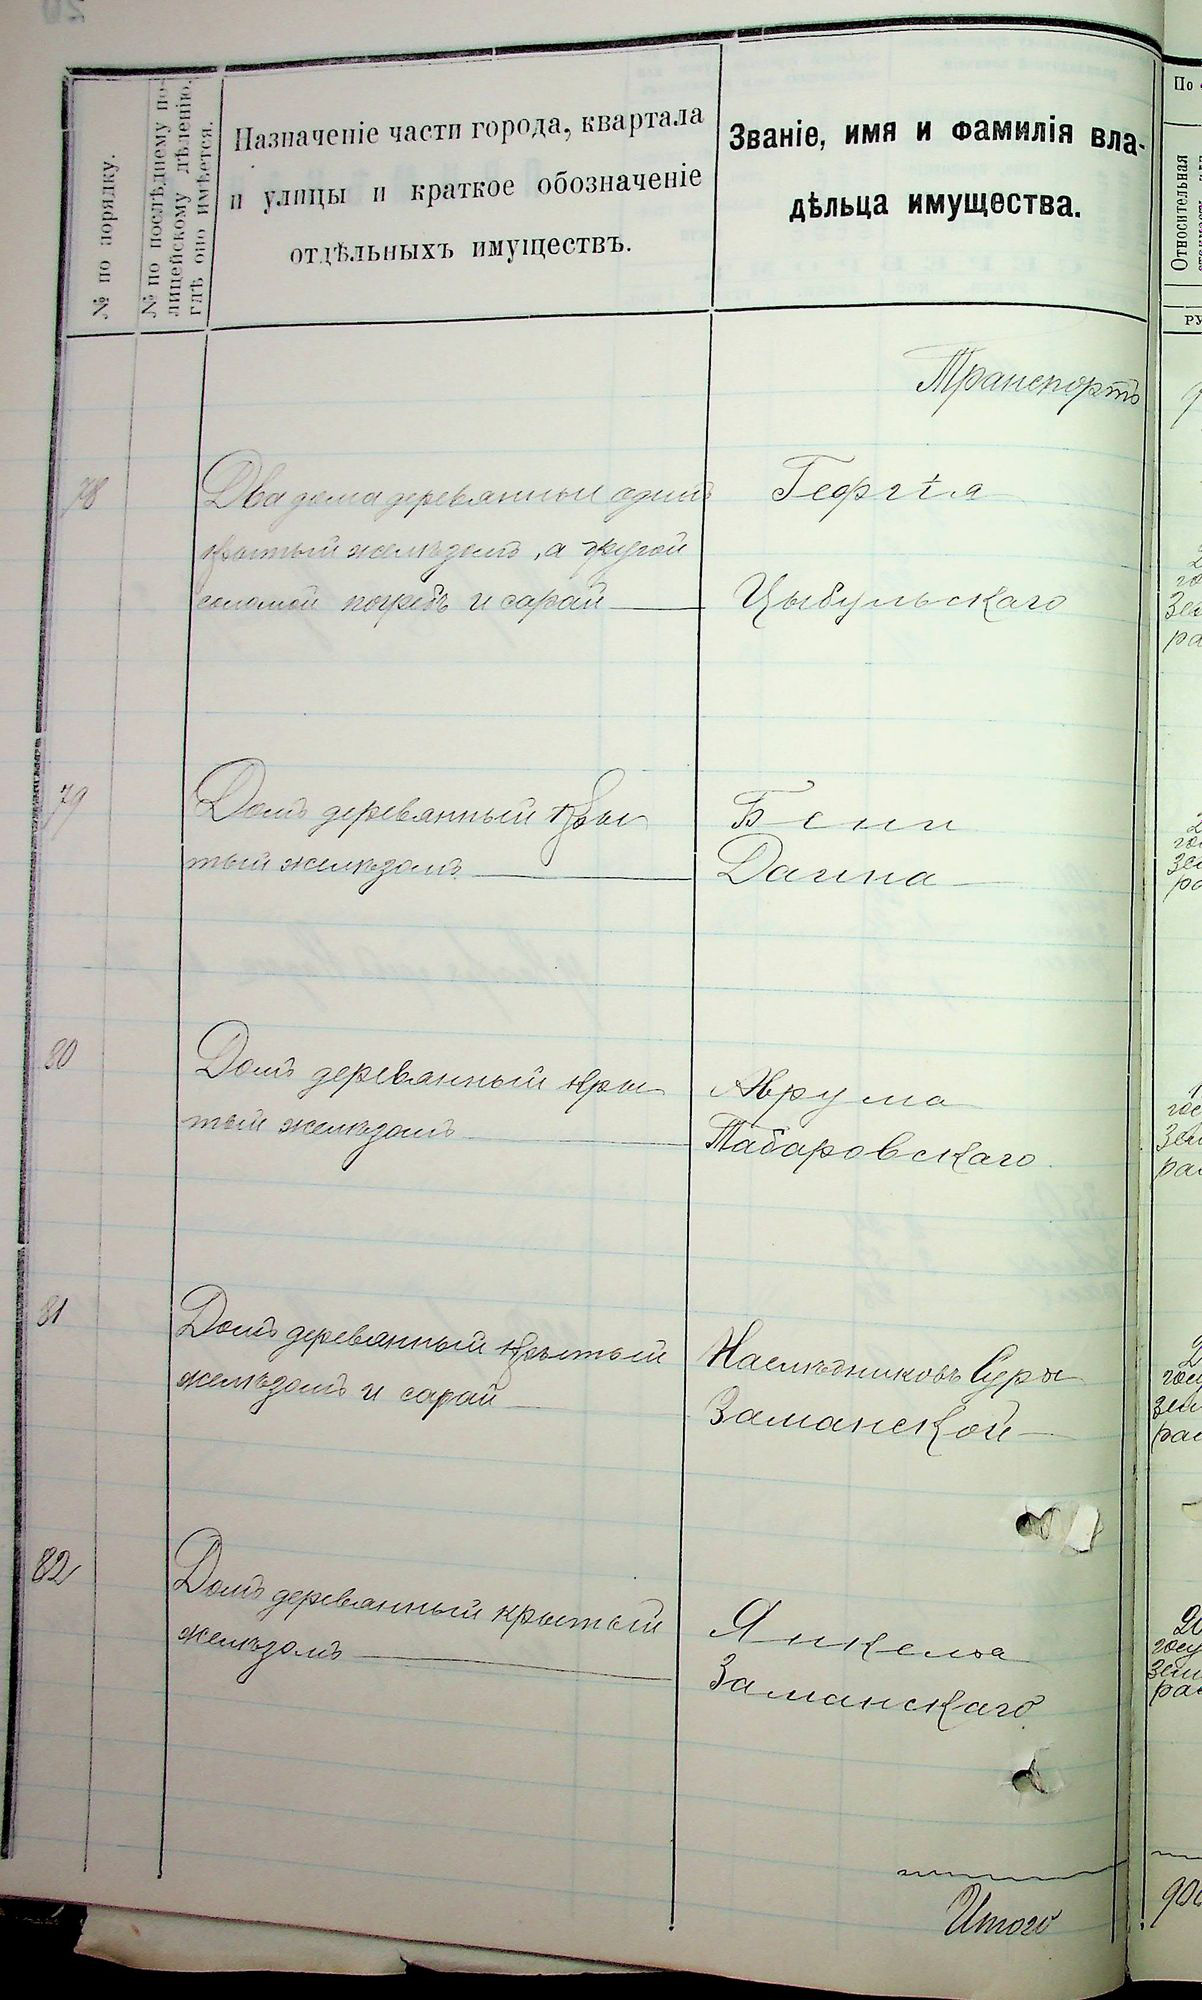 № по порядку.
№ по послѣднему по-
лицейскому дѣленію,
гдѣ оно имѣется.
Назначеніе части города, квартала
и улицы и краткое обозначеніе
отдѣльныхъ имуществъ.
Званіе, имя и фамилія вла-
дѣльца имущества.
По
Относительная
РУ
Транспортъ
78
Два дома деревянныи одинъ
крытый желѣзомъ, а другой
соломой погребъ и сарай
Георгія
Цыбульскаго
79
Домъ деревянный кры
тый желѣзомъ
Бени
Даина
80
Домъ деревянный кры
тый желѣзомъ
Аврума
Табаровскаго
81
Домъ деревянный крытый
желѣзомъ и сарай
Наслѣдниковъ Суры
Заманской
82
Домъ деревянный крытый
желѣзомъ
Янкеля
Заманскаго
Итого